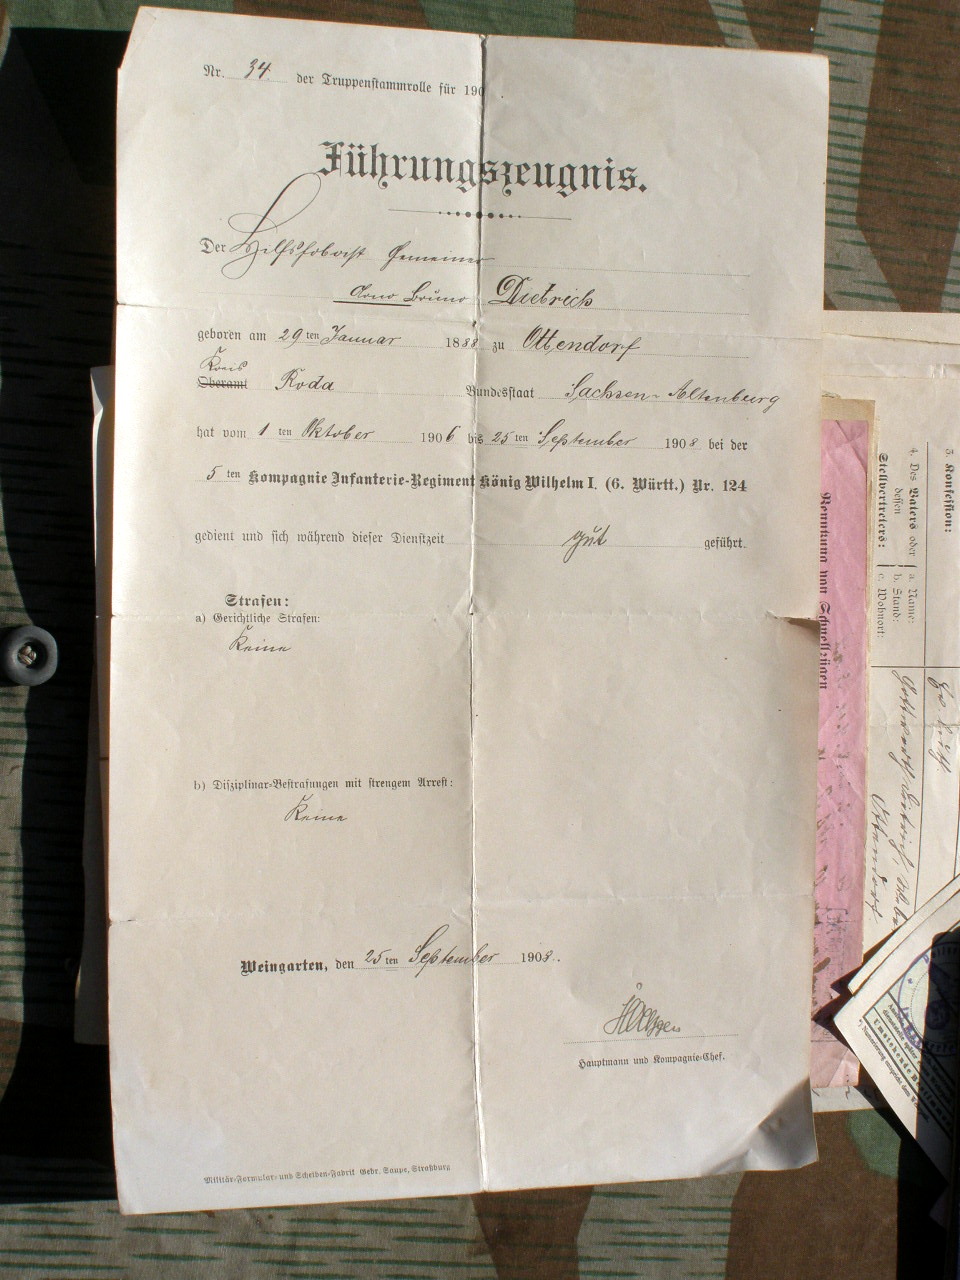 Nr. 34. der Truppenstammrolle für 190
Führungszeugnis.
Der Hilfshoboist Gemeiner
Arno Bruno Dietrich
geboren am 29 ten Januar 1888 zu Ottendorf
Kreis
Oberamt Roda Bundesstaat Sachsen-Altenburg
hat vom 1 ten Oktober 1906 bis 25 ten September 1908 bei der
5 ten Kompagnie Infanterie-Regiment König Wilhelm I. (6. Württ.) Nr. 124
gedient und sich während dieser Dienstzeit gut geführt.
Strafen:
a) Gerichtliche Strafen:
Keine
b) Disziplinar-Bestrafungen mit strengem Arrest:
Keine
Weingarten, den 25 ten September 1908.
Hauptmann und Kompagnie-Chef.
Militär-Formular- und Scheiben-Fabrik Gebr. Saupe, Straßburg
3. Konfession:
4. Des Vaters oder
dessen
Stellvertreters:
a. Name:
b. Stand:
c. Wohnort:
Ottendorf
Benutzung von Schnellzügen